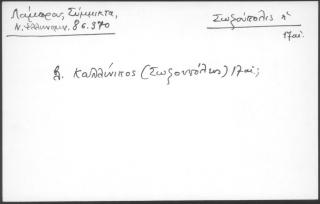 Λάμπρος, Σύμμικτα,
Ν. Ελληνομν. 8 σ. 370
Σωζούπολις η΄
17 αι.
β. Καλλίνικος (Σωζουπόλεως) 17 αι.;